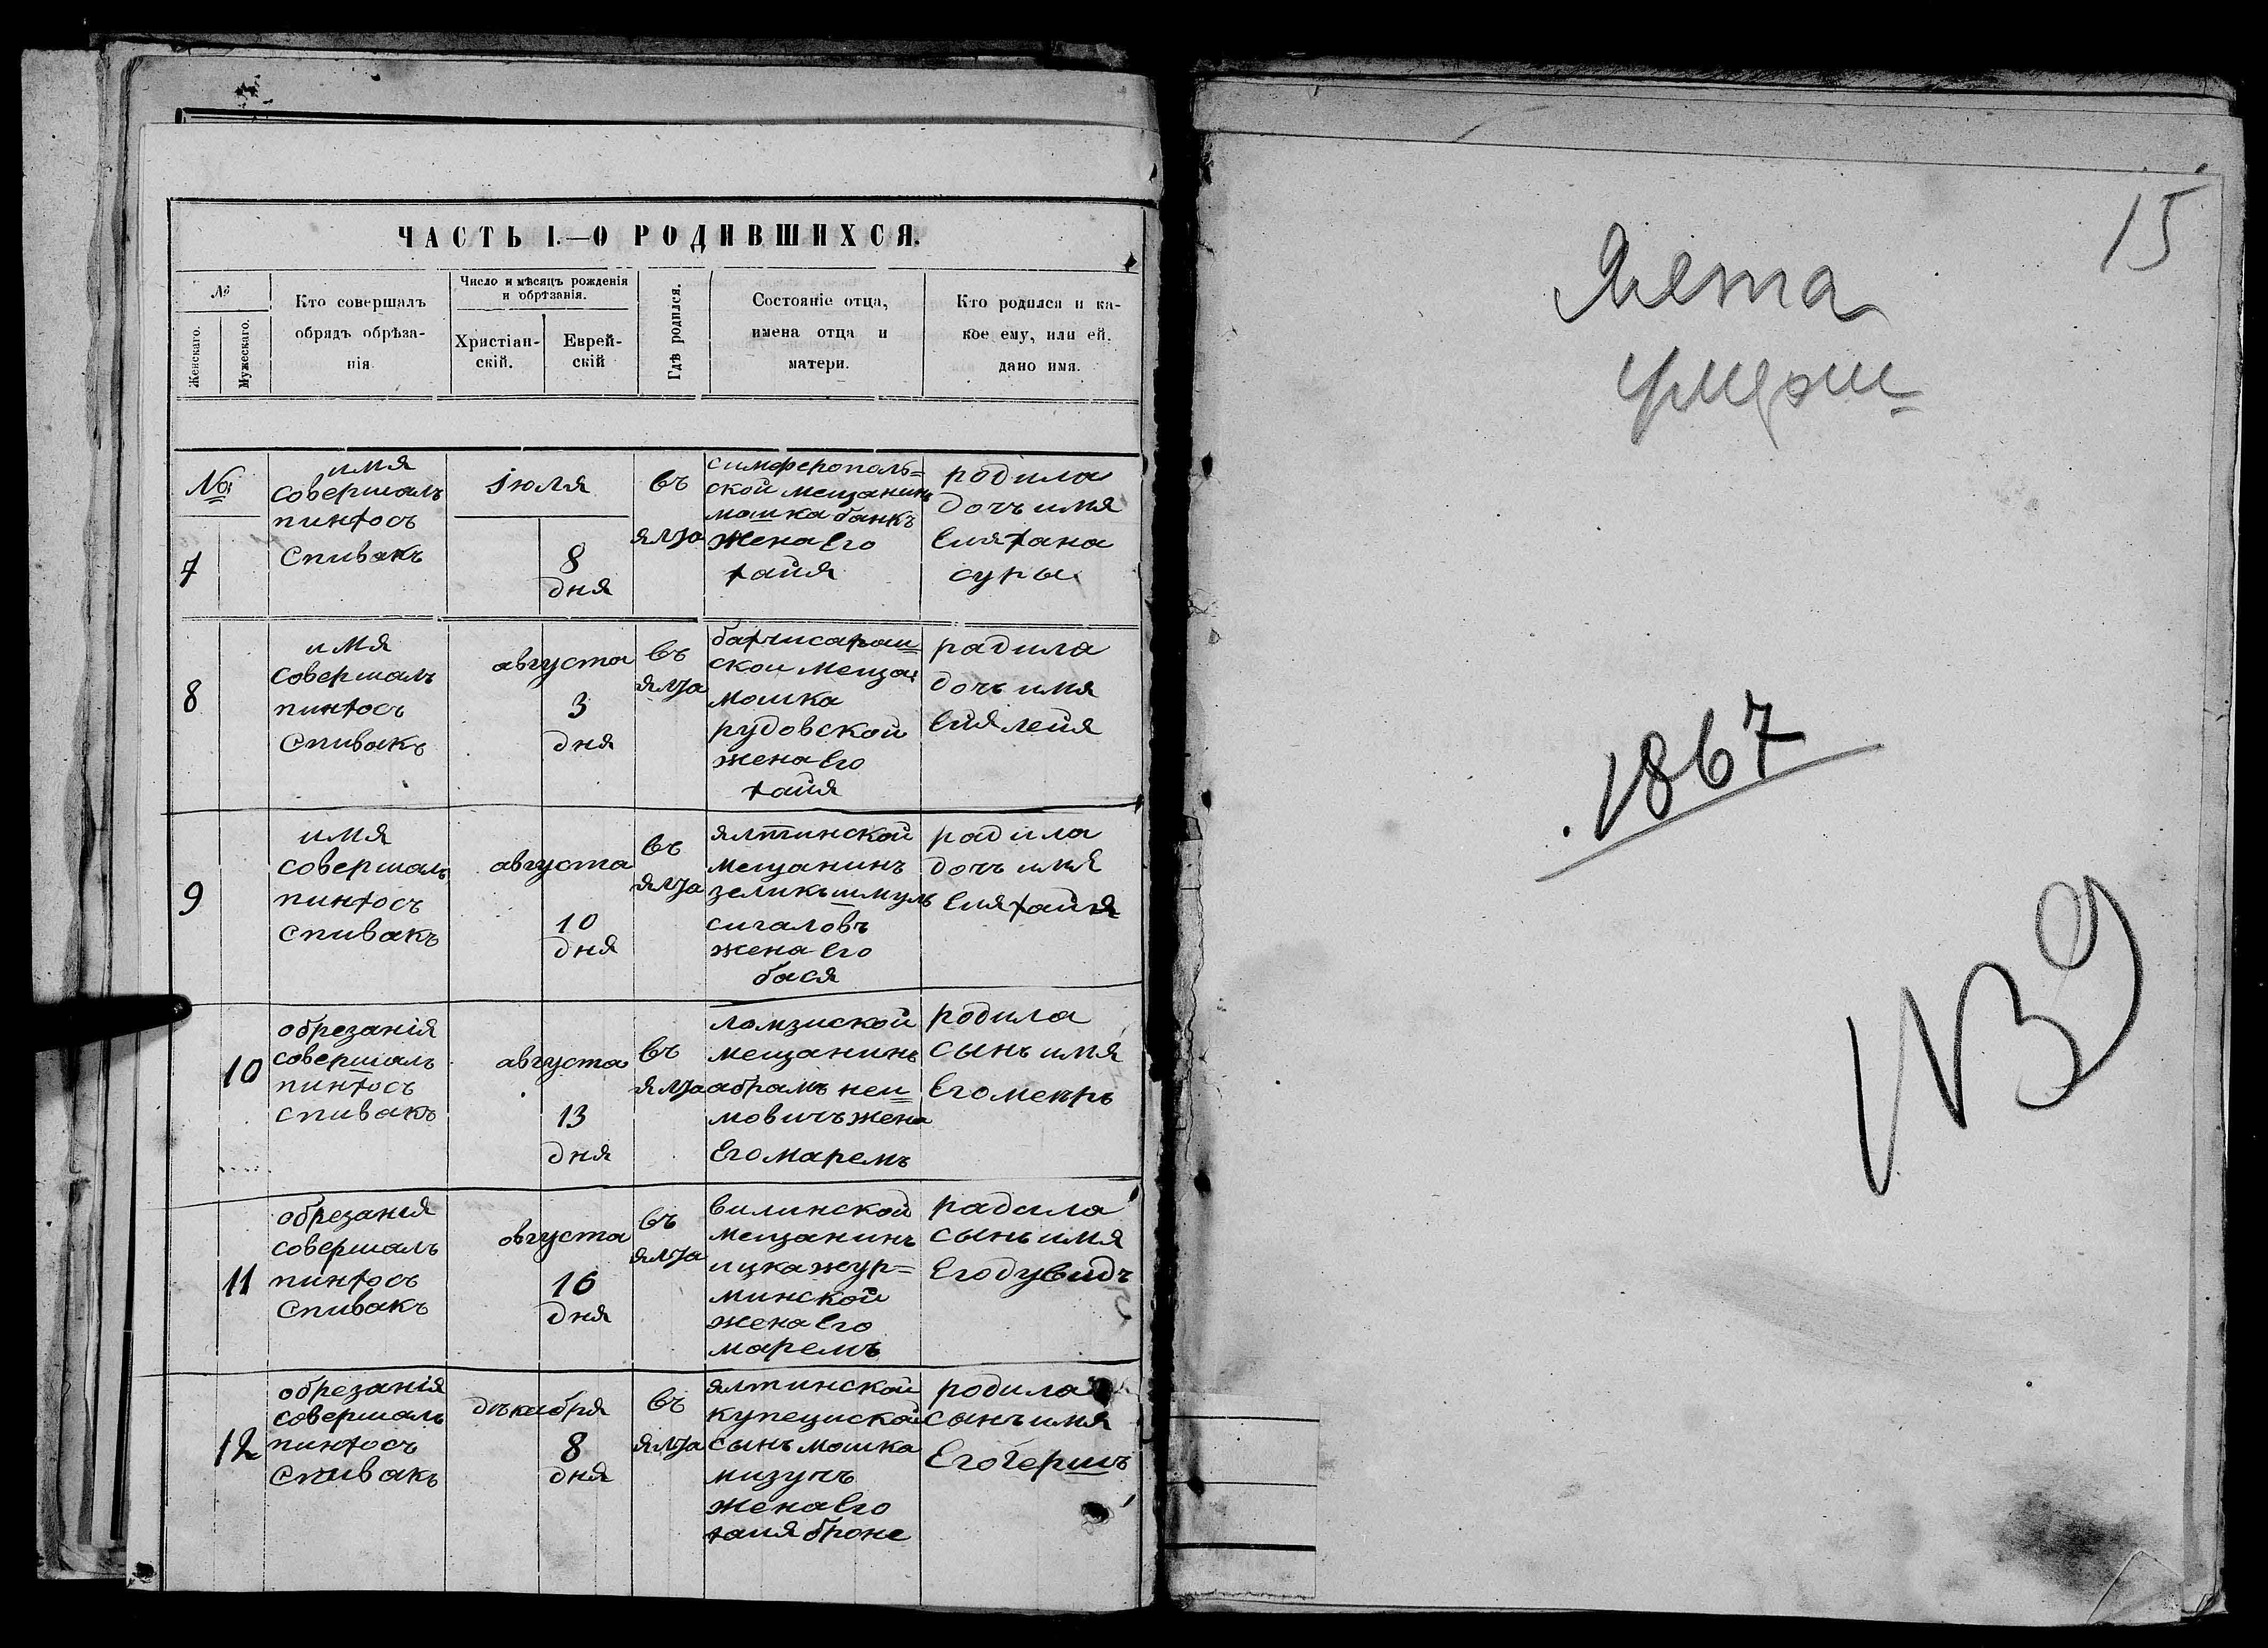 ЧАСТЬ I.—О РОДИВШИХСЯ.
№
Женскаго.
Мужескаго.
Кто совершалъ
обрядъ обрѣза-
нія
Число и мѣсяцъ рожденія
и обрѣзанія.
Христіан-
скій.
Еврей-
скій
Гдѣ родился.
Состояніе отца,
имена отца и
матери.
Кто родился и ка-
кое ему, или ей,
дано имя.
№
7
имя
совершалъ
пинхосъ
Спивакъ
Iюля
8
дня
въ
ялта
симферополь=
ской мещанинъ
мошка банкъ
жена Его
хаия
родила
дочъ имя
Еия хана
суры
8
имя
совершалъ
пинхосъ
Спивакъ
августа
3
дня
въ
ялта
бахчисараи=
скои меща:
мошка
рудовской
жена Его
хаия
радила
дочъ имя
Еия леия
9
имя
совершалъ
пинхосъ
Спивакъ
августа
10
дня
въ
ялта
ялтинской
мещанинъ
зеликъ шмулъ
сигаловъ
жена Его
бася
радила
дочъ имя
Еия хаия
10
обрезанiя
совершалъ
пинхосъ
спивакъ
августа
13
дня
въ
ялта
ломзиской
мещанинъ
абрамъ неи=
мовичъ жена
Его маремъ
родила
сынъ имя
Его меиръ
11
обрезанiя
совершалъ
пинхосъ
Спивакъ
августа
16
дня
въ
ялта
вилинской
мещанинъ
ицка жур=
минской
жена Его
маремъ
радила
сынъ имя
Его дувидъ
12
обрезанiя
совершалъ
пинхосъ
Спивакъ
дѣкабря
8
дня
въ
ялта
ялтинской
купециской
сынъ мошка
мизучъ
жена Его
хаия броне
родила
сынъ имя
Его Гершъ
15
Ялта
умерш
1867